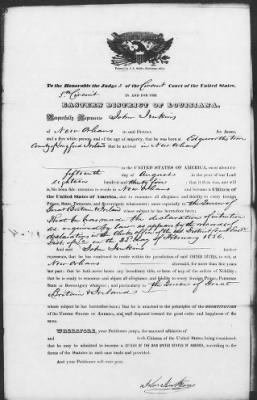 To the Honorable the Judge s of the Circuit Court of the United States,
5th Circuit
IN AND FOR THE
EASTERN DISTRICT OF LOUISIANA.
Respectfully Represents John Jenkins
of New Orleans
and a free white person, and of the age of majority, that he was born at Edgeworthtown
that he arrived in New Orleans
in the UNITED STATES OF AMERICA, on or about the
fifteenth day of August in the year
Eighteen hundred and thirty four
it has been his intention to reside in New Orleans and become a Citizen of
the United States of America, and to renounce all allegiance and fidelity to every foreign
Prince, State, Potentate and Sovereignty whatsoever; and especially to the Queen of
Great Britain & Ireland whose subject he has heretofore been;
That he has made the declaration of intention
as required by law as appears by the
on the 25th day of February 1856
John Jenkins
further, that he has continued to reside within the jurisdiction of the
New Orleans aforesaid, for more than five years
last past; that he hath never borne any hereditary title, or been of any of the orders of Nobility;
that he is ready to renounce and abjure all allegiance and fidelity to every foreign Prince, Potentate
State or Sovereignty whatsoever; and particularly to the Queen of Great
Britain & Ireland
whose subject he has heretofore been; that he is attached to the principles of the CONSTITUTION
of the UNITED STATES OF AMERICA, and well disposed toward the good order and happiness of the
same.
WHEREFORE, your Petitioner prays, the annexed affidavits of
and both Citizens of the United States, being considered,
that he may be admitted to become a CITIZEN OF THE SAID UNITED STATES OF AMERICA, according to the
forms of the Statutes in such case made and provided.
And your Petitioner will ever pray.
John Jenkins